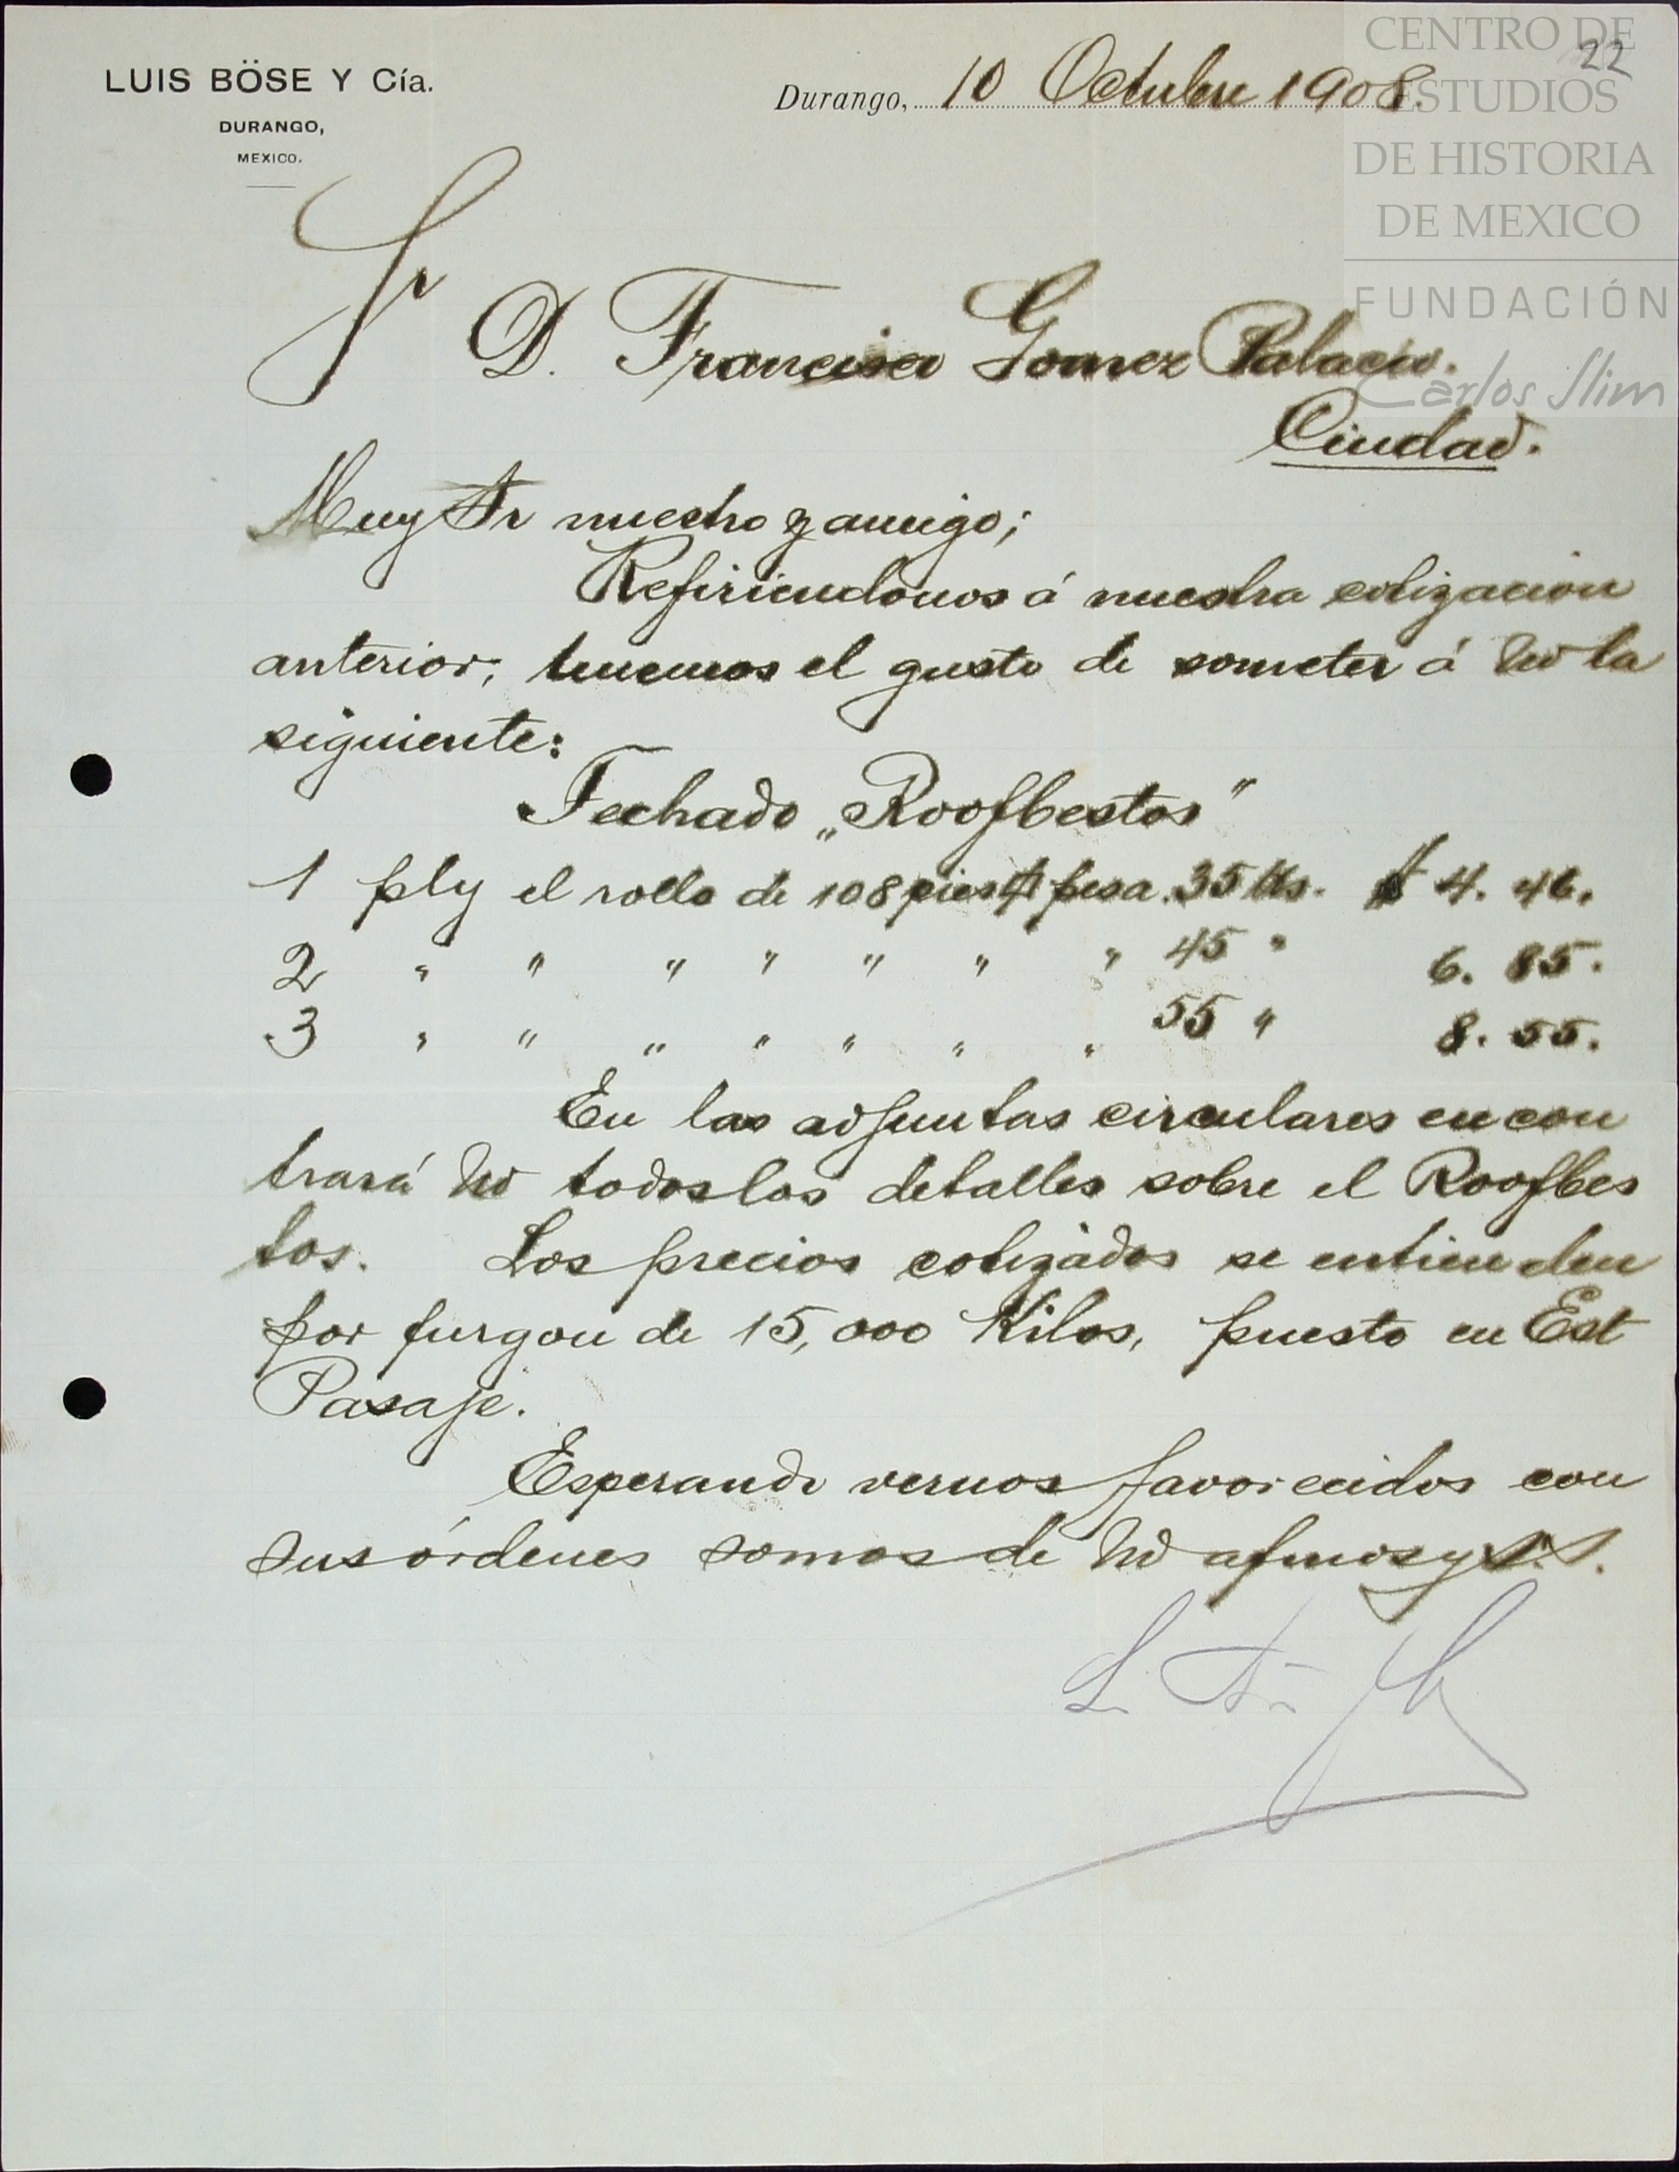 22
LUIS BÖSE Y Cía.
DURANGO,
MEXICO.
Durango, 10 Octubre 1908.
CENTRO DE
ESTUDIOS
DE HISTORIA
DE MEXICO
FUNDACIÓN
Carlos Slim
Sr
D. Francisco Gomez Palacio.
Ciudad.
Muy Sr nuestro y amigo;
Refiriendonos á nuestra cotizacion
anterior, tenemos el gusto de someter á Ud la
siguiente:
Techado „Roofbestos"
1 ply el rollo de 108 pies pesa 35 lbs. $ 4. 46.
2 " " " " " " " 45 " 6. 85.
3 " " " " " " " 55 " 8. 55.
En las adjuntas circulares encon
trará Ud todos los detalles sobre el Roofbes
tos. Los precios cotizados se entienden
por furgon de 15,000 Kilos, puesto en Est
Pasaje.
Esperando vernos favorecidos con
sus órdenes somos de Ud afmos y S.S.